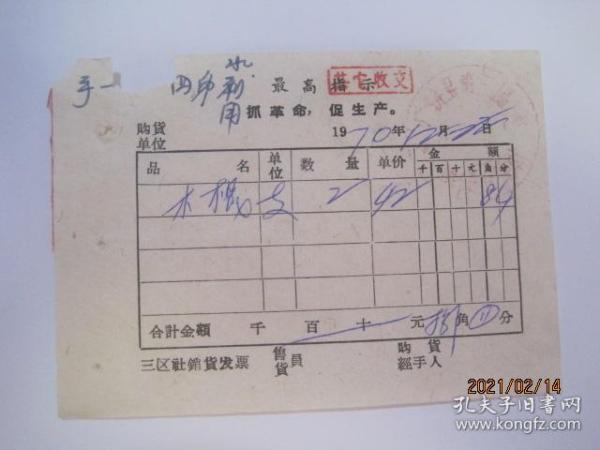 最高指示
抓革命，促生产。
购货
单位
1970年12月 日
品名 单位 数量 单价 金额
千 百 十 元 角 分
木 支 2 42 84
合計金額 千 百 十 元 捌角 分
三区社銷貨发票 售貨員 购貨經手人
2021/02/14
孔夫子旧書网
www.kongfz.com